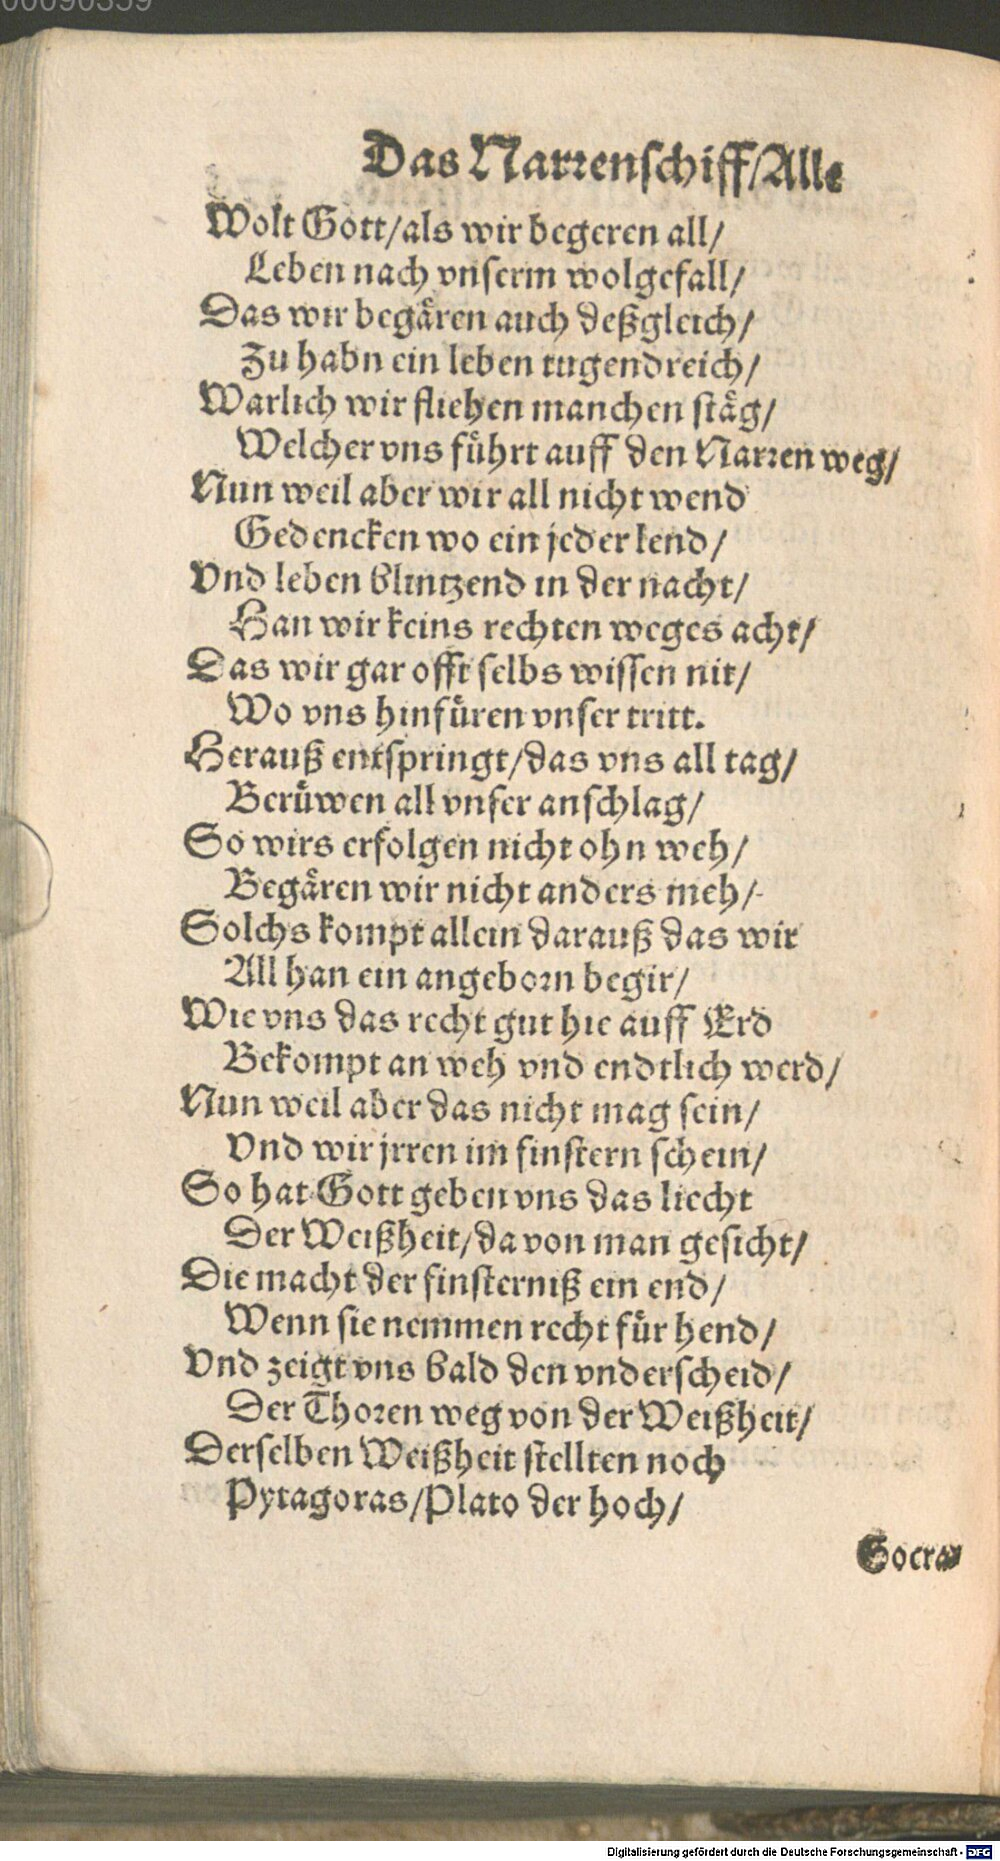 00090359
Das Narrenschiff/Alle
Wolt Gott/als wir begeren all/
Leben nach vnserm wolgefall/
Das wir begären auch deßgleich/
Zu habn ein leben tugendreich/
Warlich wir fliehen manchen stäg/
Welcher vns führt auff den Narren weg/
Nun weil aber wir all nicht wend
Gedencken wo ein jeder lend/
Vnd leben blintzend in der nacht/
Han wir keins rechten weges acht/
Das wir gar offt selbs wissen nit/
Wo vns hinfüren vnser tritt.
Herauß entspringt/das vns all tag/
Berüwen all vnser anschlag/
So wirs erfolgen nicht ohn weh/
Begären wir nicht anders meh/
Solchs kompt allein darauß das wir
All han ein angeborn begir/
Wie vns das recht gut hie auff Erd
Bekompt an weh vnd endtlich werd/
Nun weil aber das nicht mag sein/
Vnd wir jrren im finstern schein/
So hat Gott geben vns das liecht
Der Weißheit/da von man gesicht/
Die macht der finsterniß ein end/
Wenn sie nemmen recht für hend/
Vnd zeigt vns bald den vnderscheid/
Der Thoren weg von der Weißheit/
Derselben Weißheit stellten noch
Pytagoras/Plato der hoch/
Socra
Digitalisierung gefördert durch die Deutsche Forschungsgemeinschaft - DFG